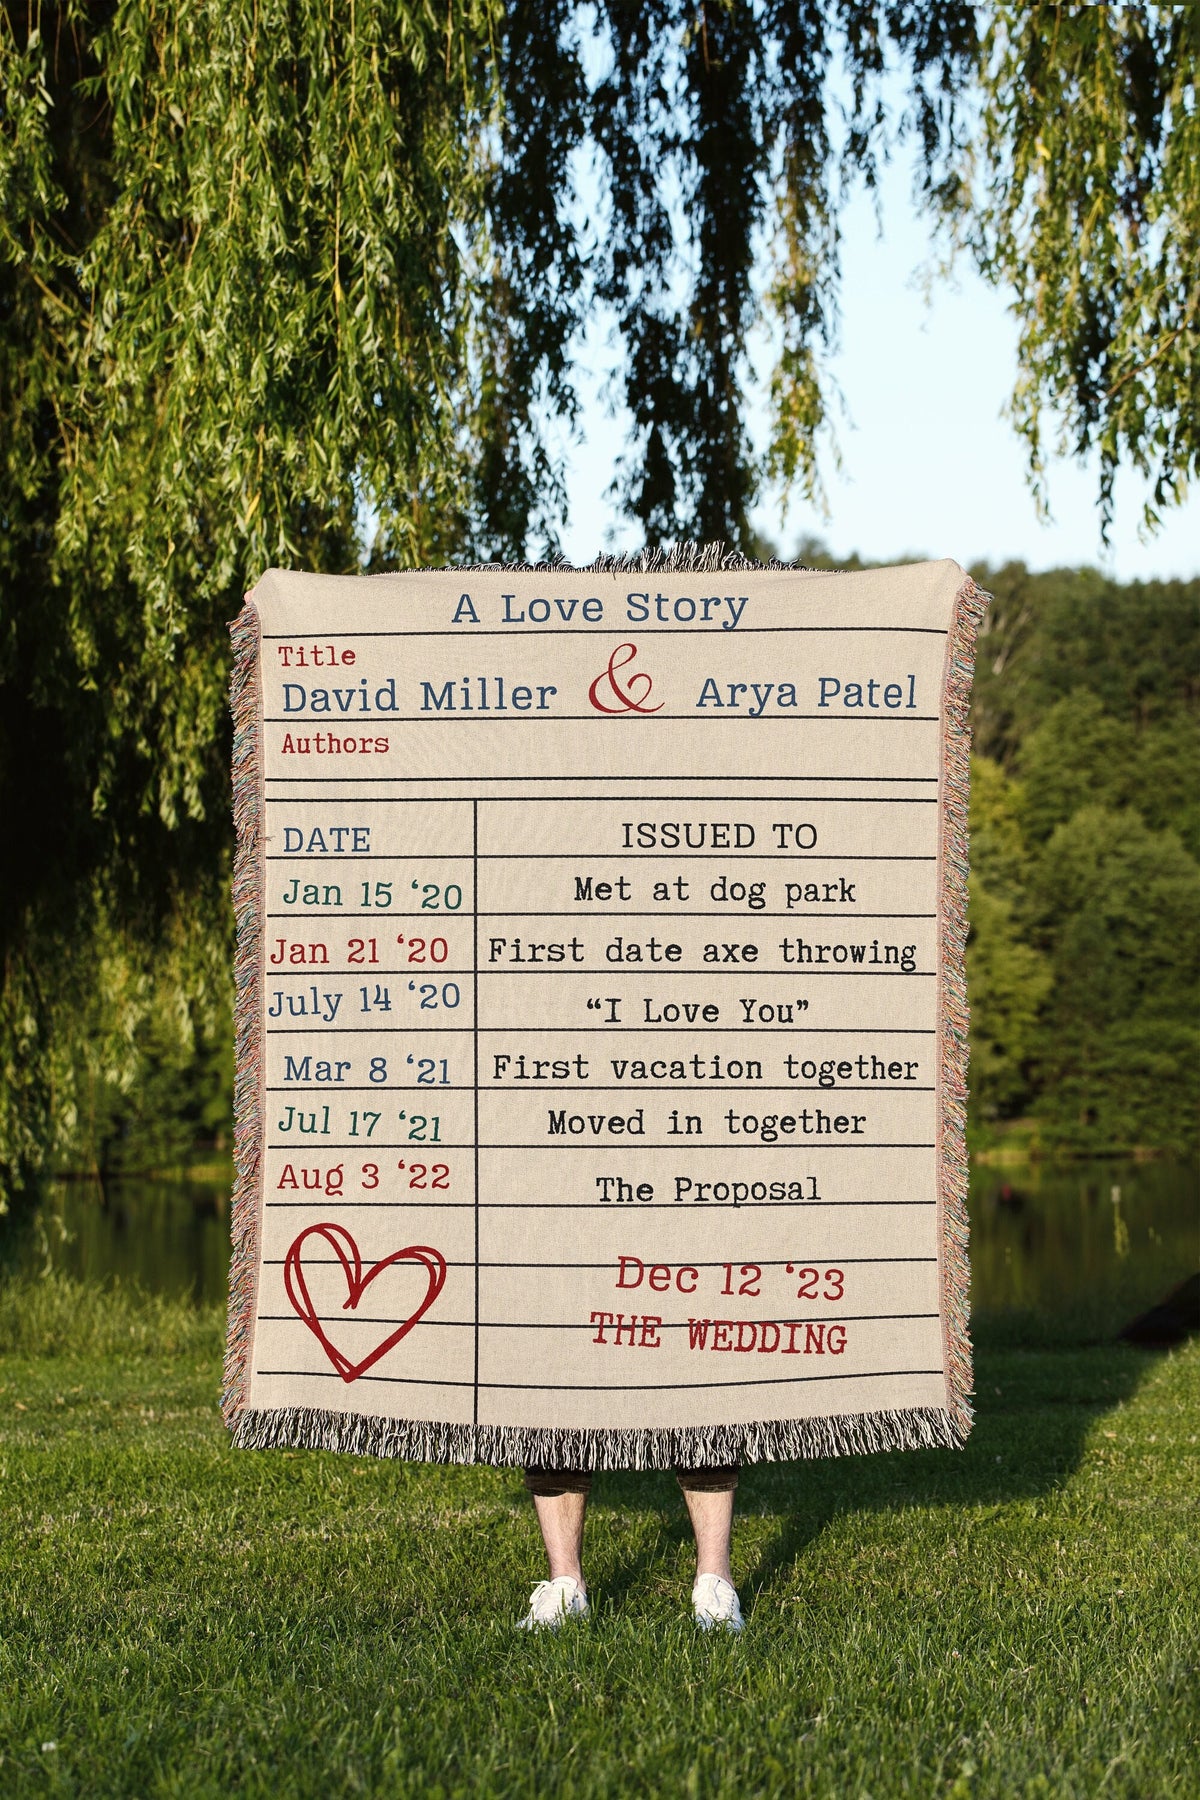 A Love Story
Title
David Miller & Arya Patel
Authors
DATE ISSUED TO
Jan 15 ‘20 Met at dog park
Jan 21 ‘20 First date axe throwing
July 14 ‘20 “I Love You”
Mar 8 ‘21 First vacation together
Jul 17 ‘21 Moved in together
Aug 3 ‘22 The Proposal
Dec 12 ‘23
THE WEDDING